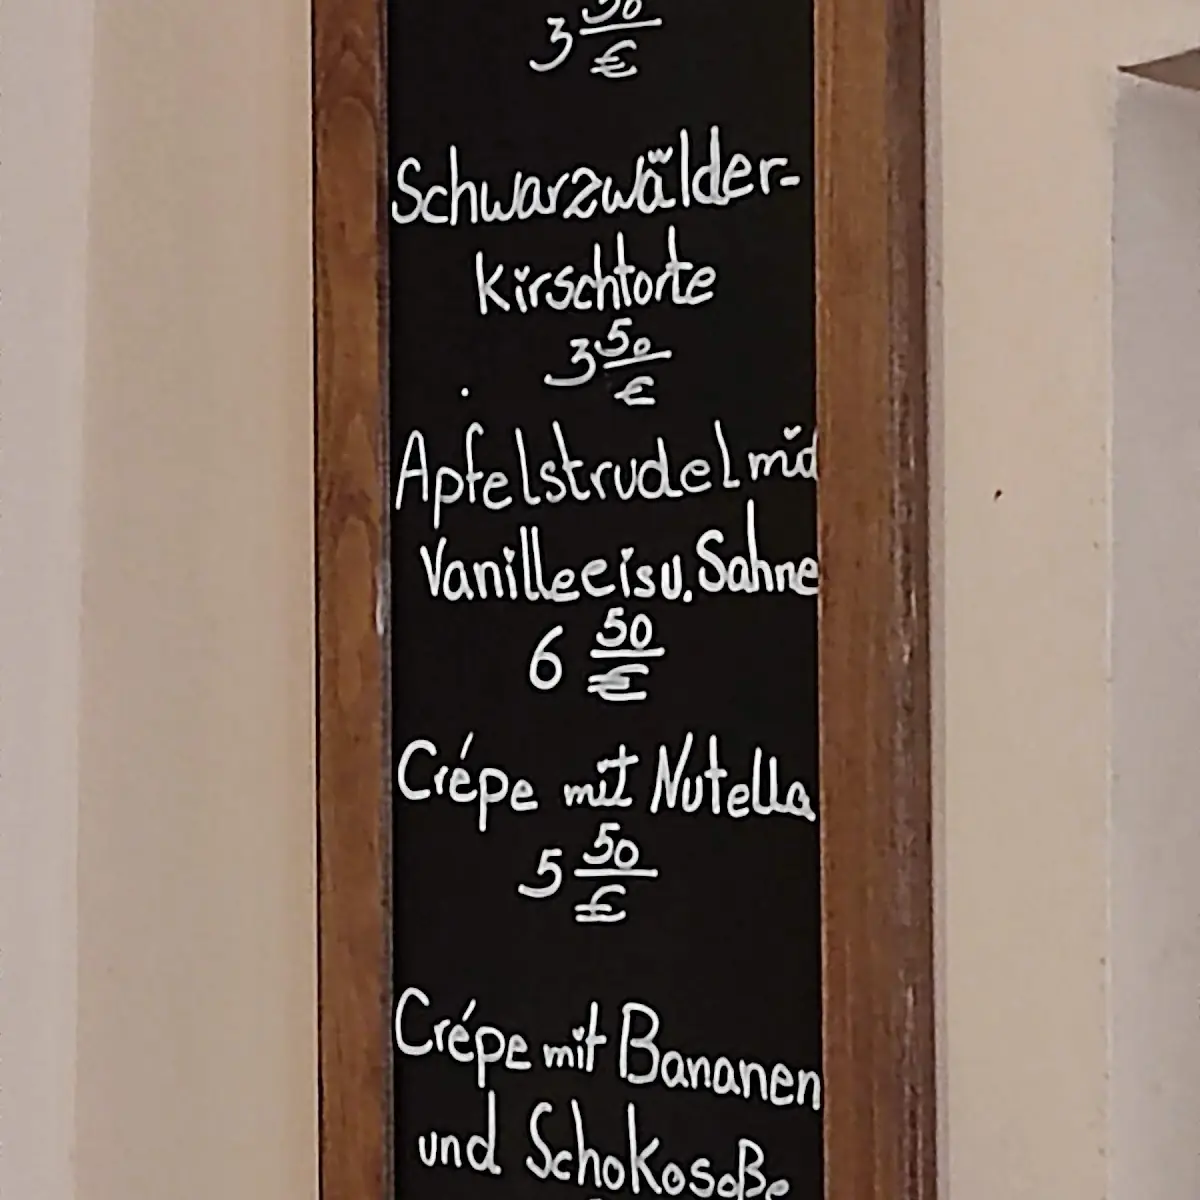 3 50/€
Schwarzwälder-
kirschtorte
3 50/€
Apfelstrudel mit
Vanilleeis u. Sahne
6 50/€
Crépe mit Nutella
5 50/€
Crépe mit Bananen
und Schokosoße